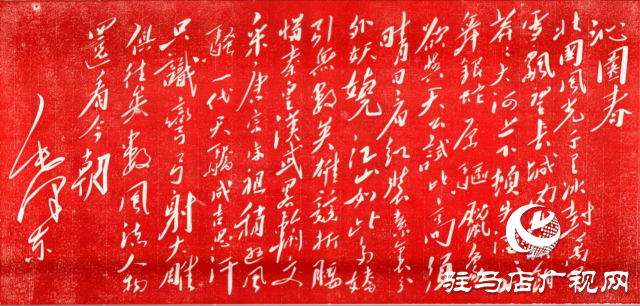 沁园春
北国风光千里冰封万
雪飘望长城内
莽莽大河上下顿失滔
舞银蛇原驱蜡象
欲与天公试比高须
晴日看红装素裹分
外妖娆江山如此多娇
引无数英雄竞折腰
惜秦皇汉武略输文
采唐宗宋祖稍逊风
骚一代天骄成吉思汗
只识弯弓射大雕
俱往矣数风流人物
还看今朝
毛泽东
驻马店广视网